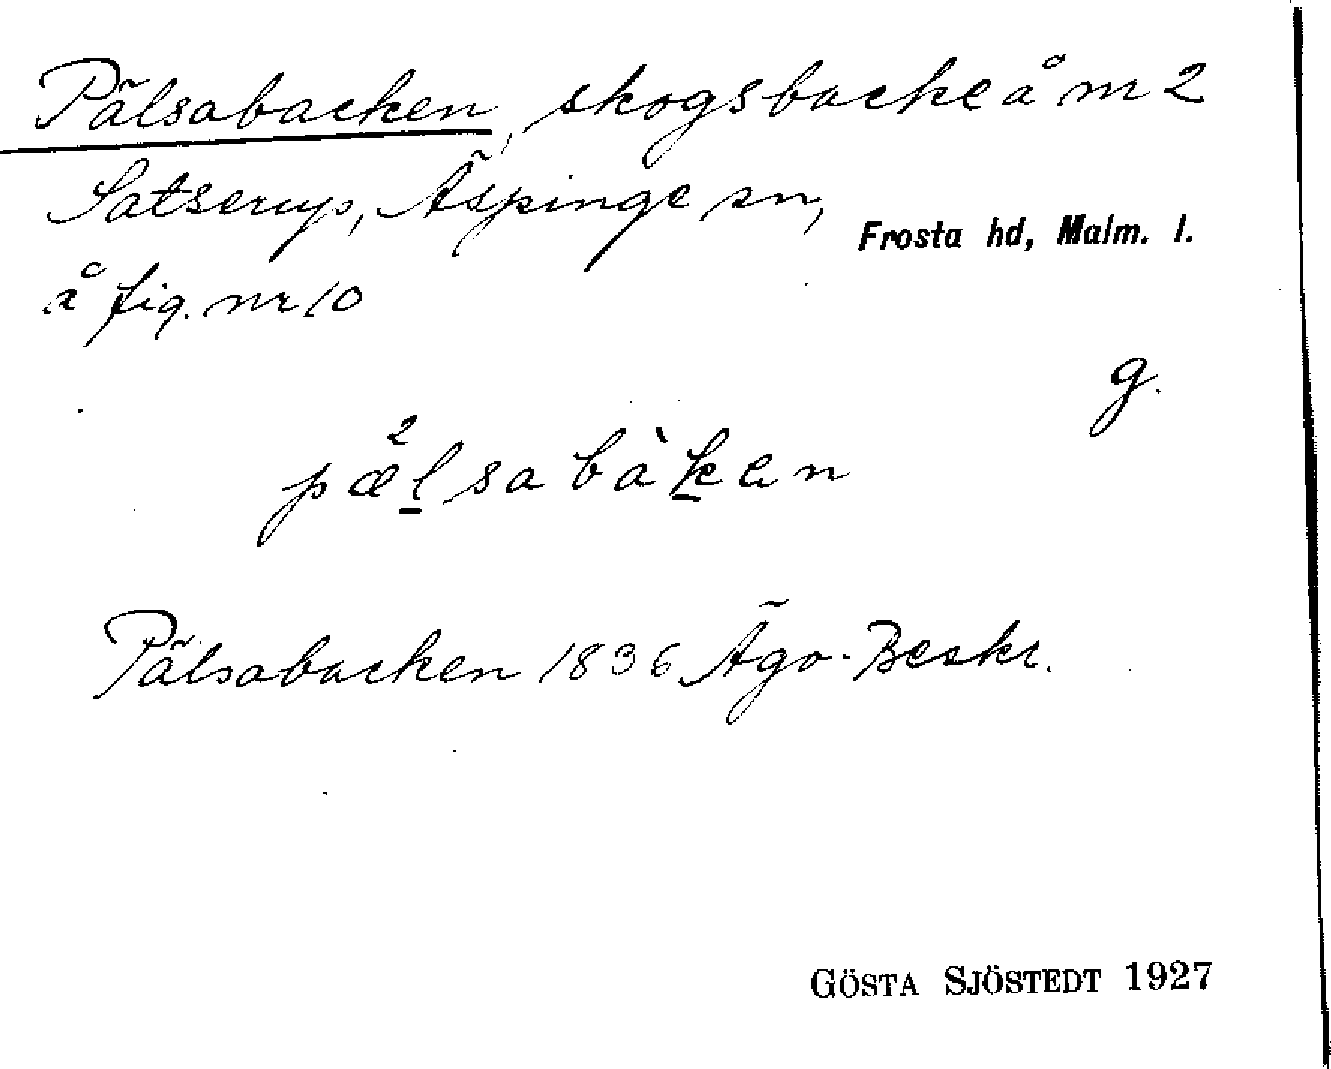 Pälsabacken, skogsbacke å nr 2
Satserup, Äspinge sn, Frosta hd, Malm. l.
å fig. nr 10
g.
pæ²lsabàken
Pälsabacken 1836 Ägo-Beskr.
GÖSTA SJÖSTEDT 1927